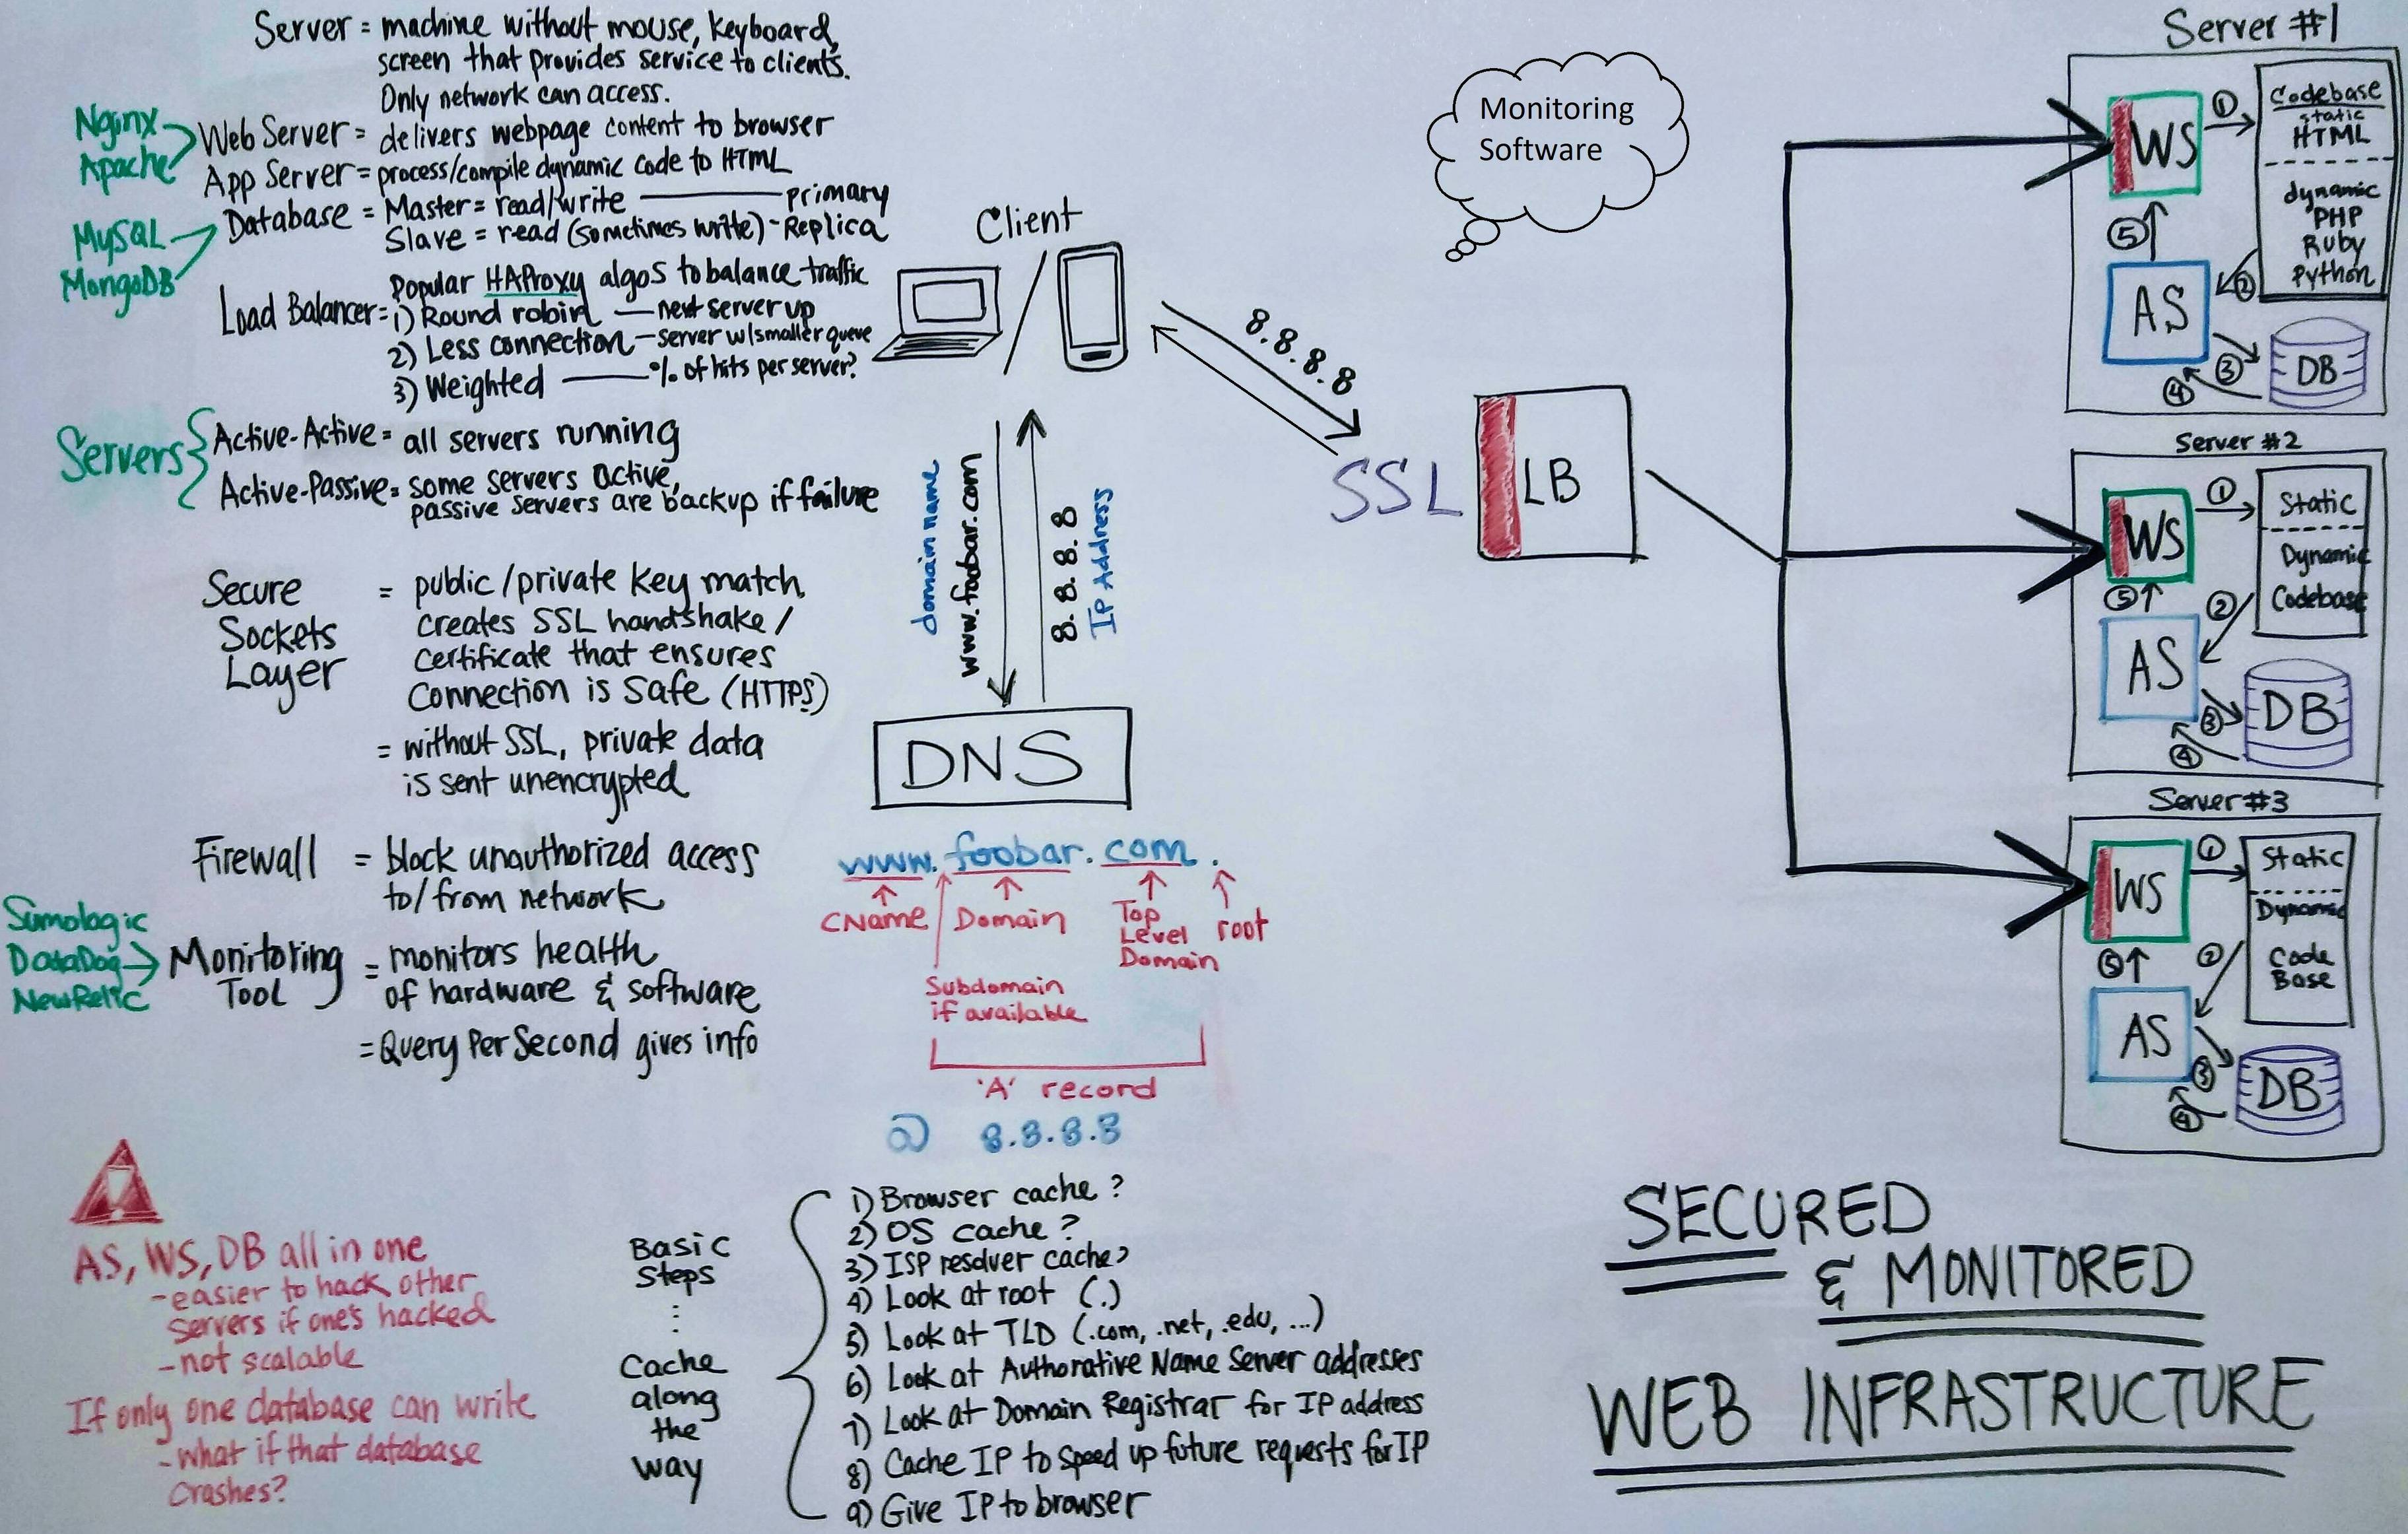 Server = machine without mouse, keyboard,
screen that provides service to clients.
Only network can access.
Nginx
Apache
Web Server = delivers webpage content to browser
App Server = process/compile dynamic code to HTML
MySQL
MongoDB
Database = Master = read/write — primary
Slave = read (sometimes write) - Replica
Load Balancer = Popular HAProxy algos to balance traffic
1) Round robin — next server up
2) Less connection — server w/smaller queue
3) Weighted — % of hits per server?
Servers
Active-Active = all servers running
Active-Passive = some servers active,
passive servers are backup if failure
Secure
Sockets
Layer
= public/private key match
creates SSL handshake/
certificate that ensures
connection is safe (HTTPS)
= without SSL, private data
is sent unencrypted
Firewall = block unauthorized access
to/from network
Sumologic
DataDog
NewRelic
Monitoring
Tool
= monitors health
of hardware & software
= Query Per Second gives info
AS, WS, DB all in one
- easier to hack other
servers if one's hacked
- not scalable
If only one database can write
- what if that database
crashes?
Client
8.8.8.8
domain name
www.foobar.com
8.8.8.8
IP Address
DNS
www.foobar.com.
CName
Domain
Top
Level
Domain
root
Subdomain
if available
'A' record
8.8.8.8
Basic
Steps
Cache
along
the
way
1) Browser cache?
2) OS cache?
3) ISP resolver cache?
4) Look at root (.)
5) Look at TLD (.com, .net, .edu, ...)
6) Look at Authorative Name Server addresses
7) Look at Domain Registrar for IP address
8) Cache IP to speed up future requests for IP
9) Give IP to browser
Monitoring
Software
SSL
LB
Server #1
WS
1
Codebase
static
HTML
dynamic
PHP
Ruby
Python
5
2
AS
3
4
DB
Server #2
WS
1
Static
Dynamic
Codebase
5
2
AS
3
4
DB
Server #3
WS
1
Static
Dynamic
Code
Base
5
2
AS
3
4
DB
SECURED
& MONITORED
WEB INFRASTRUCTURE